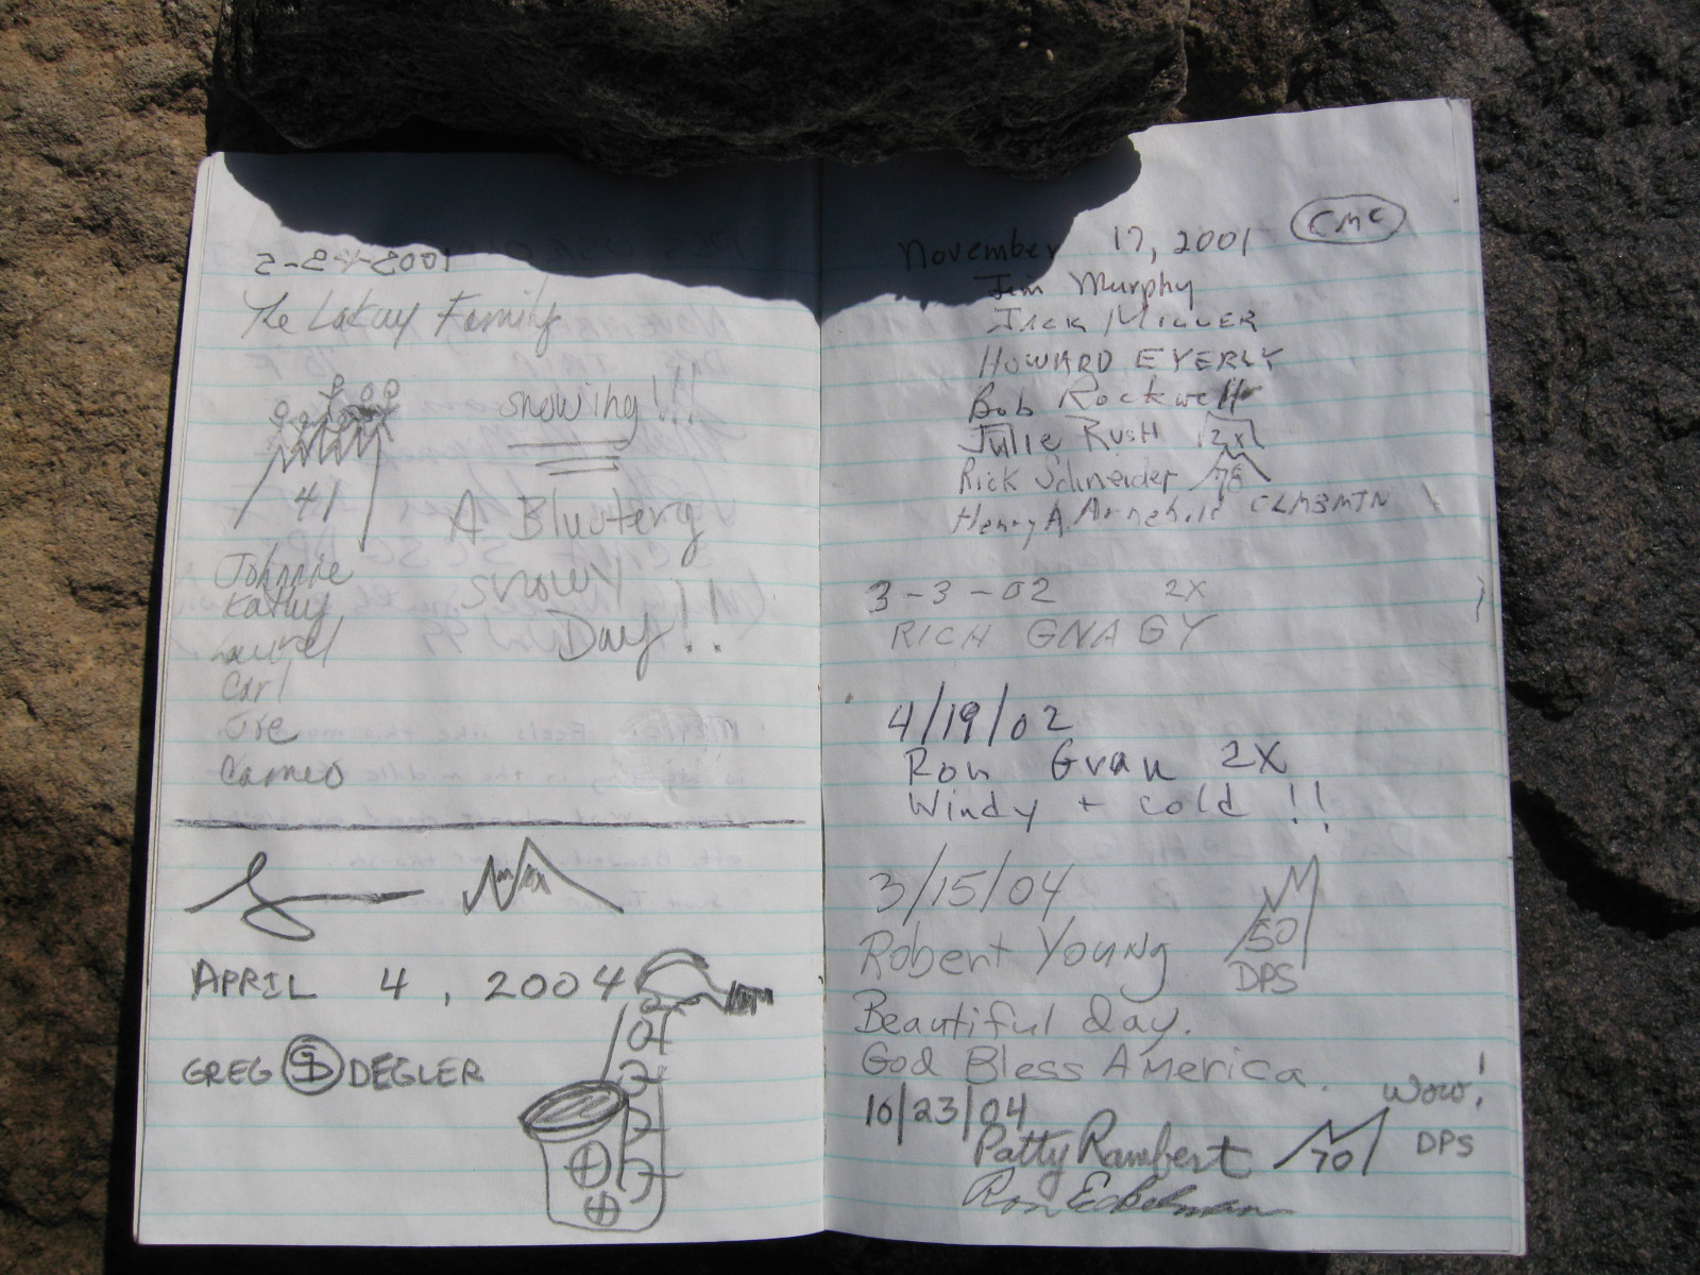 2-24-2001
The Lakuy Family
snowing!!!
41
A Blustery
snowy
Day!!
Johnnie
Kathy
Laurel
Carl
Cameo
APRIL 4, 2004
GREG DEGLER
CMC
November 17, 2001
Jim Murphy
JACK MILLER
HOWARD EYERLY
Bob Rockwell
Julie RUSH 2x
Rick Schneider 78
Henry A. CLMBMTN
3-3-02 2X
RICH GNAGY
4/19/02
Ron Gran 2X
Windy + cold!!
3/15/04
50
Robert Young
DPS
Beautiful day.
God Bless America.
Wow!
10/23/04
Patty Rambert 70 DPS
Ron Eshelman